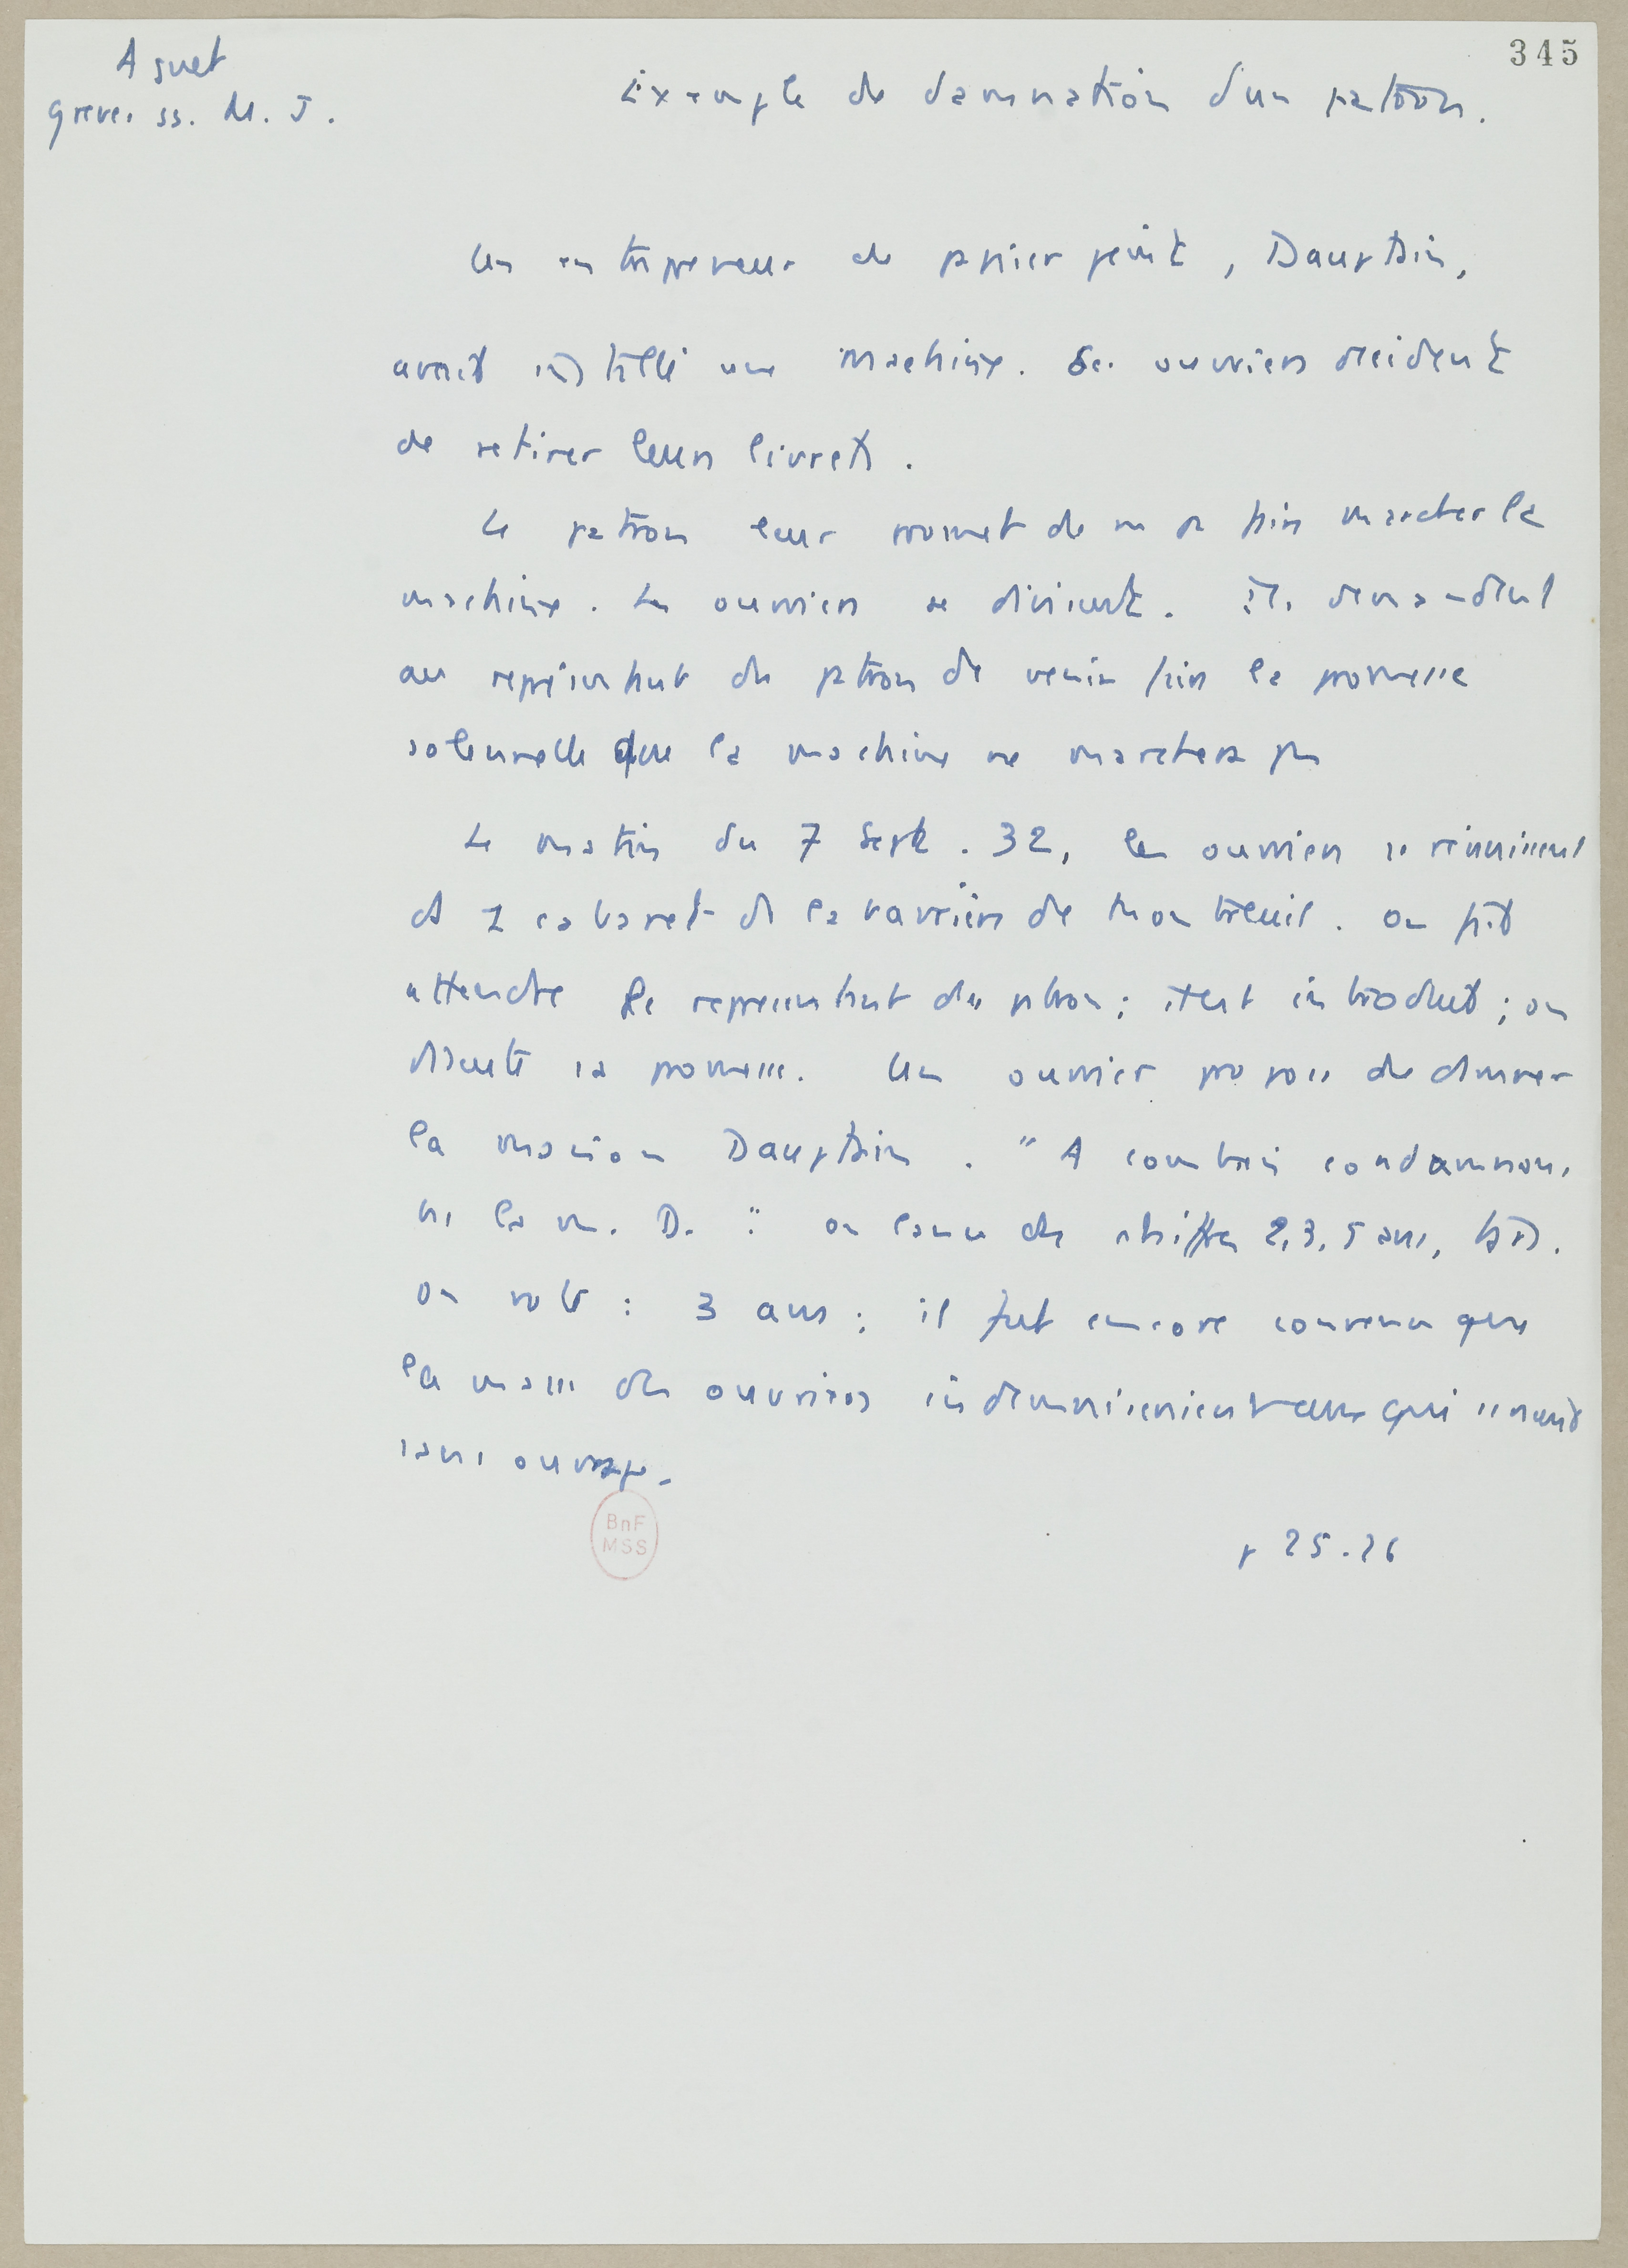 345
Aguet
Greves ss. M. J.
Exemple de damnation d'un patron.
Un entrepreneur de papier peint, Dauptain,
avait installé une machine. Ses ouvriers décident
de retirer leurs livrets.
Le patron leur promet de ne pas faire marcher la
machine. Les ouvriers se divisent. Ils demandent
au représentant du patron de venir faire la promesse
solennelle que la machine ne marchera pas
Le matin du 7 Sept. 32, les ouvriers se réunissent
ds 1 cabaret de la barrière de Montreuil. On fait
attendre le représentant du patron ; il est introduit ; on
discute sa promesse. Un ouvrier propose de damner
la maison Dauptain. "A combien condamnons
ns la m. D. " on lance des chiffres 2, 3, 5 ans,
On vote : 3 ans ; il fut encore convenu que
la masse des ouvriers indemniseraient ceux qui seraient
sans ouvrage.
BnF
MSS
p 25.26